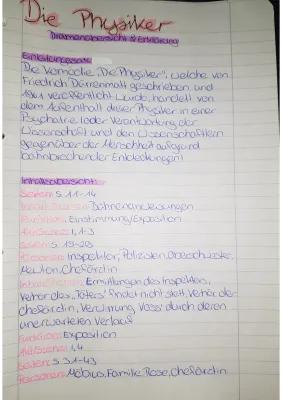 Die Physiker
Dramenübersicht & Erklärung
Einleitungssatz
Die Komödie „Die Physiker", welche von
Friedrich Dürrenmatt geschrieben und
1961 veröffentlicht wurde, handelt von
dem Aufenthalt dieser Physiker in einer
Psychatrie (oder Verantwortung der
Wissenschaft und den Wissenschaftlern
gegenüber der Menschheit aufgrund
bahnbrechender Entdeckungen)
Inhaltsübersicht
Seiten: S. 11-14
Bühnenanweisungen
Funktion: Einstimmung/Exposition
Akt/Szene: 1, 1-3
Seiten: S. 15-28
Personen: Inspektor, Polizisten, Oberschwester,
Newton, Chefärztin
Ermittlungen des Inspektors,
Verhör des „Täters" findet nicht statt, Verhör der
Chefärztin, Verwirrung Voss' durch deren
unerwarteten Verlauf
Funktion: Exposition
Akt/Szene: 1, 4
Seiten: S. 31-43
Personen: Möbius, Familie Rose, Chefärztin